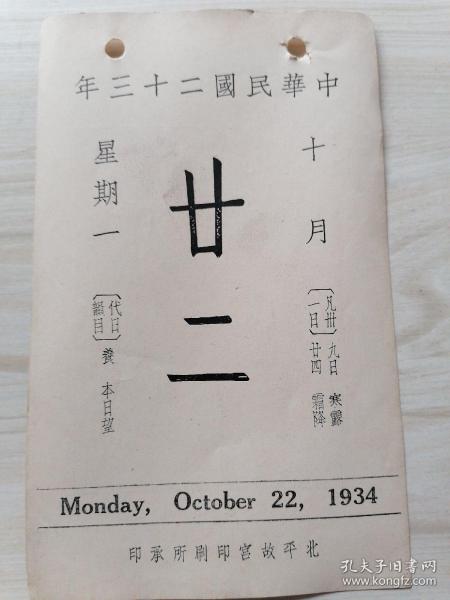 中華民國二十三年
十月
廿二
星期一
〔凡卅一日〕
九日 寒露
廿四 霜降
〔代日韻目〕養 本日望
Monday, October 22, 1934
北平故宮印刷所承印
孔夫子旧书网
www.kongfz.com